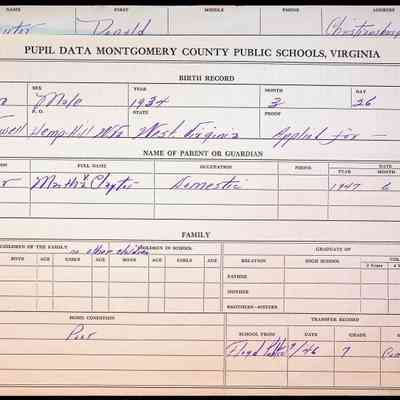 NAME FIRST MIDDLE PHONE ADDRESS
Donald Christiansburg
PUPIL DATA MONTGOMERY COUNTY PUBLIC SCHOOLS, VIRGINIA
BIRTH RECORD
SEX YEAR MONTH DAY
Male 1934 3 26
P.O. STATE PROOF
West Virginia Applied for —
NAME OF PARENT OR GUARDIAN
FULL NAME OCCUPATION PHONE DATE
YEAR MONTH
Martha Claytor Domestic 1947 6
FAMILY
CHILDREN OF THE FAMILY no other children CHILDREN IN SCHOOL GRADUATE OF
BOYS AGE GIRLS AGE BOYS AGE GIRLS AGE RELATION HIGH SCHOOL
2 Years
FATHER
MOTHER
BROTHERS—SISTERS
HOME CONDITION TRANSFER RECORD
Poor
SCHOOL FROM DATE GRADE
Floyd 9/46 7